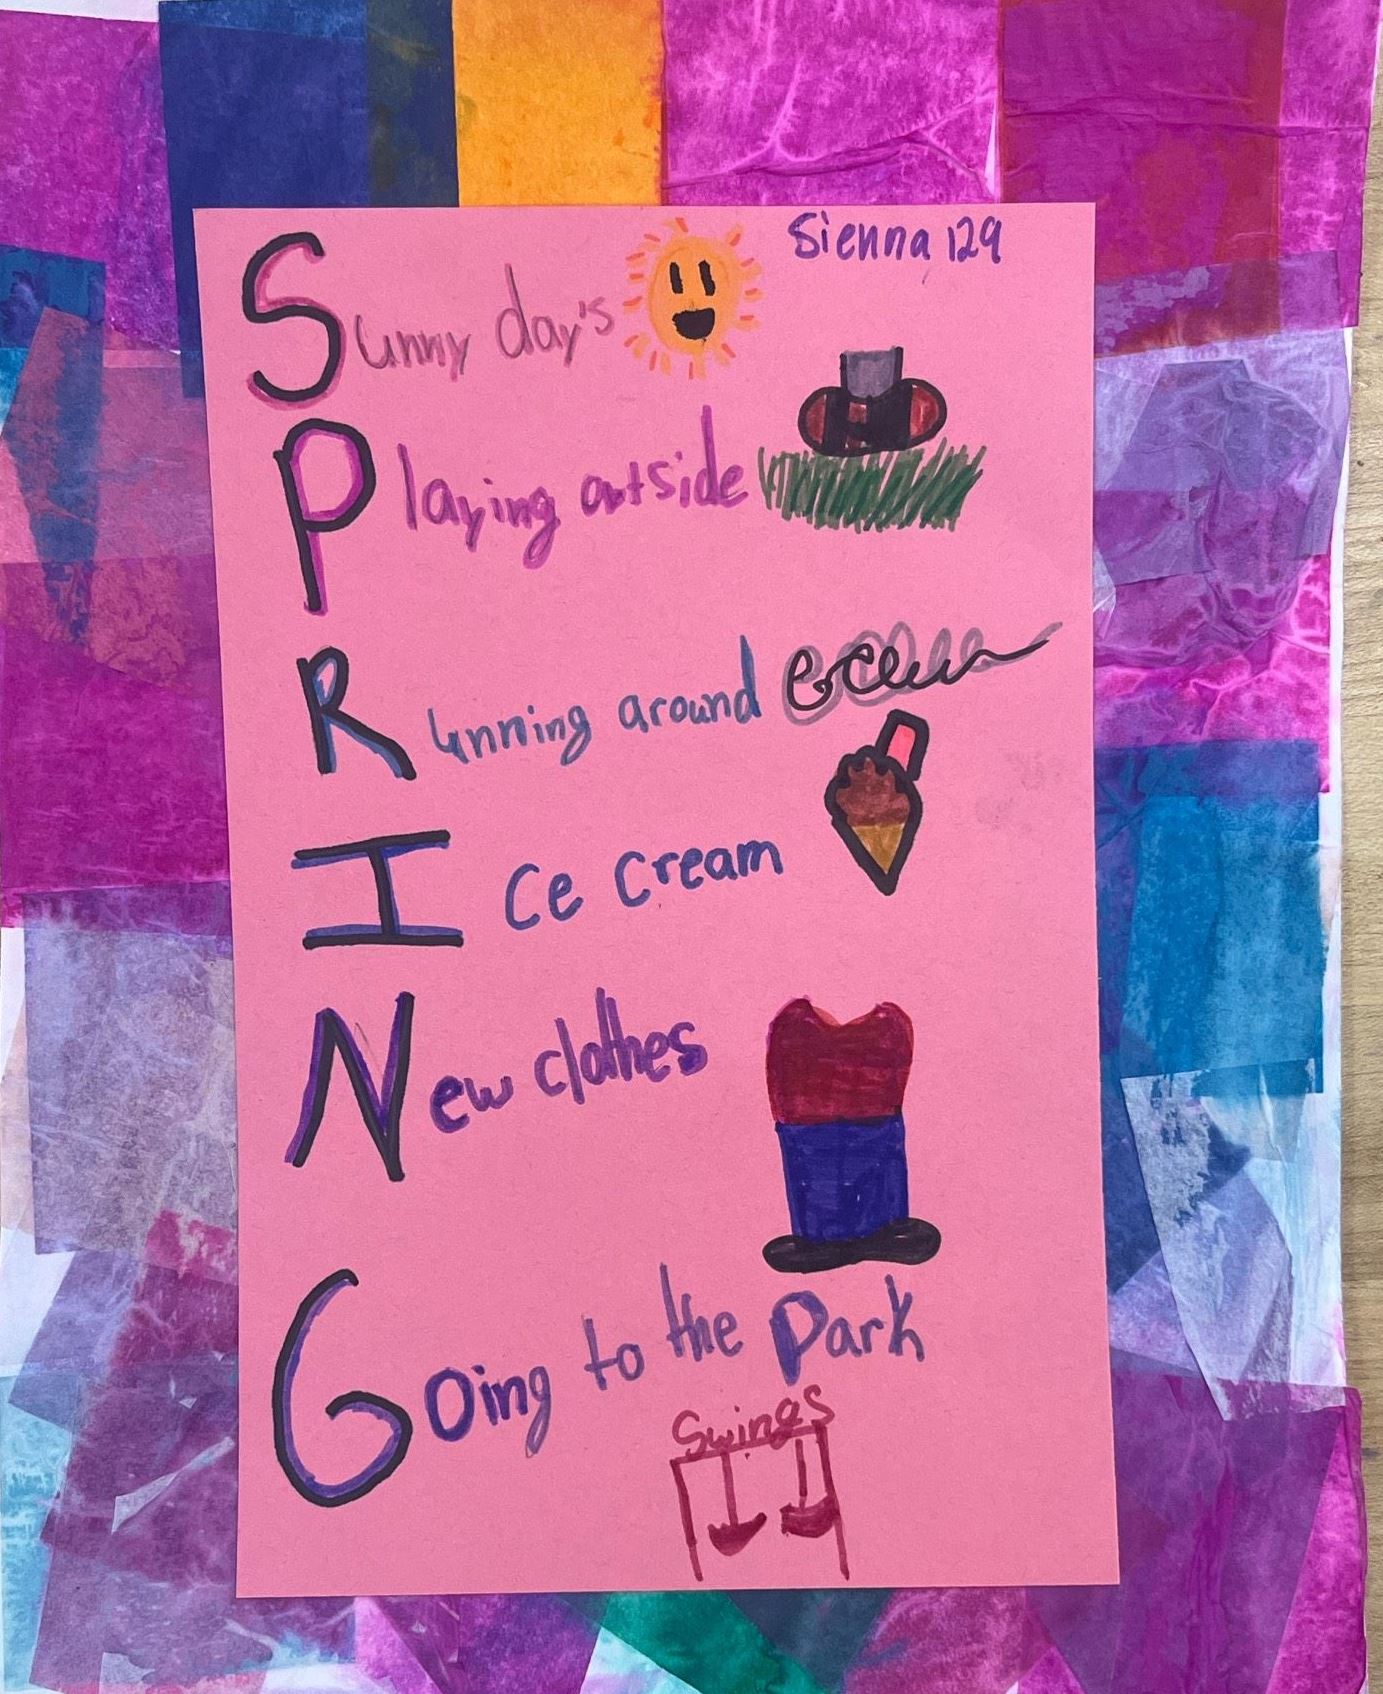 Sienna 129
Sunny day's
Playing outside
Running around
Ice cream
New clothes
Going to the Park
Swings